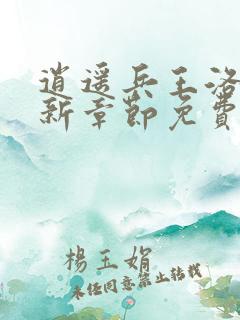 逍遥兵王洛
新章節免費
楊玉娟
未经同意禁止转载